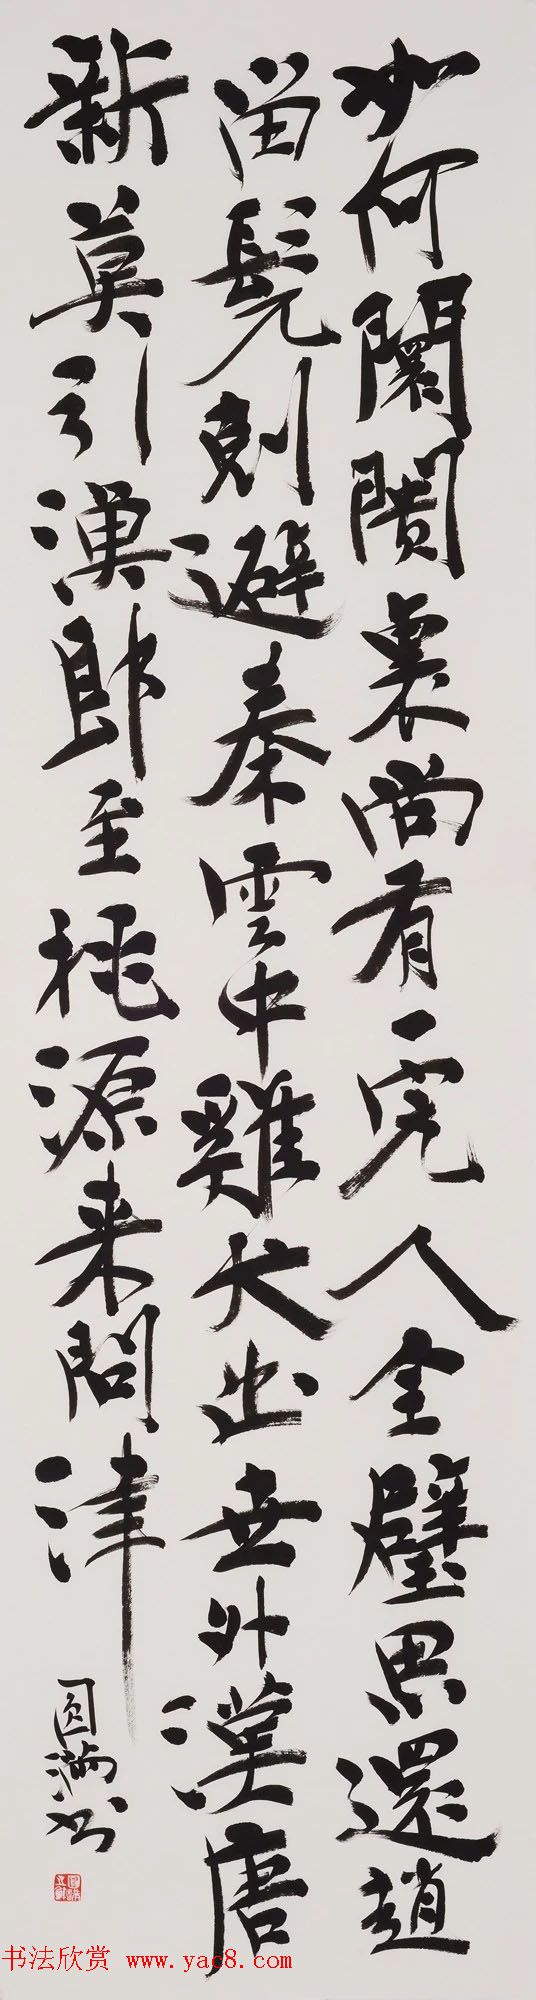 如何闤闠裏尚有一完人全璧思還趙
留髡刺避秦雲中雞犬出世外漢唐
新莫引漁郎至桃源来問津
圆满书
书法欣赏 www.yac8.com